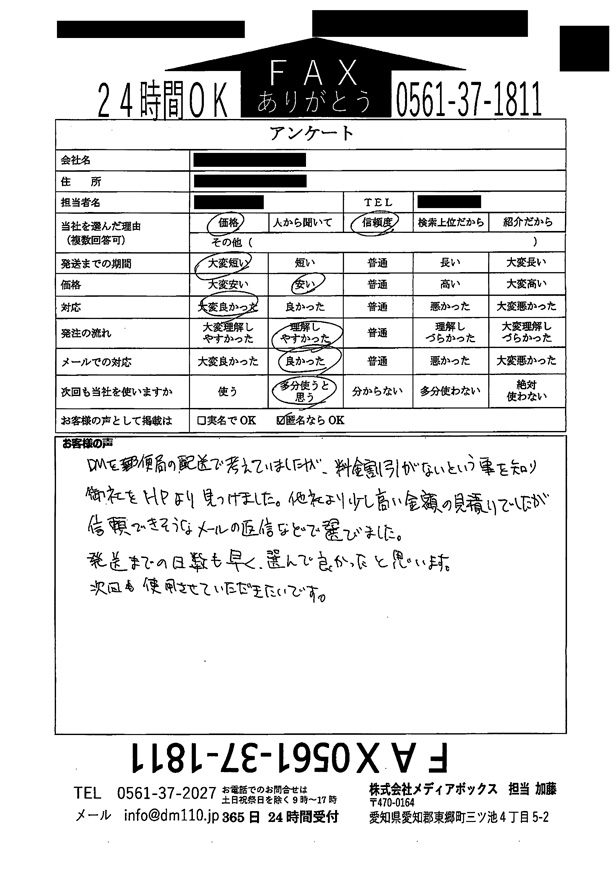 FAX
ありがとう
24時間OK
0561-37-1811
アンケート
会社名
住 所
担当者名 TEL
当社を選んだ理由（複数回答可） 価格 人から聞いて 信頼度 検索上位だから 紹介だから
その他（ ）
発送までの期間 大変短い 短い 普通 長い 大変長い
価格 大変安い 安い 普通 高い 大変高い
対応 大変良かった 良かった 普通 悪かった 大変悪かった
発注の流れ 大変理解しやすかった 理解しやすかった 普通 理解しづらかった 大変理解しづらかった
メールでの対応 大変良かった 良かった 普通 悪かった 大変悪かった
次回も当社を使いますか 使う 多分使うと思う 分からない 多分使わない 絶対使わない
お客様の声として掲載は □実名でOK ☑匿名ならOK
お客様の声
DMを郵便局の配送で考えていましたが、料金割引がないという事を知り
御社をHPより見つけました。他社より少し高い金額の見積りでしたが
信頼できそうなメールの返信などで選びました。
発送までの日数も早く、選んで良かったと思います。
次回も使用させていただきたいです。
FAX0561-37-1811
TEL 0561-37-2027 お電話でのお問合せは
土日祝祭日を除く9時～17時
メール info@dm110.jp 365日 24時間受付
株式会社メディアボックス 担当 加藤
〒470-0164
愛知県愛知郡東郷町三ツ池4丁目5-2